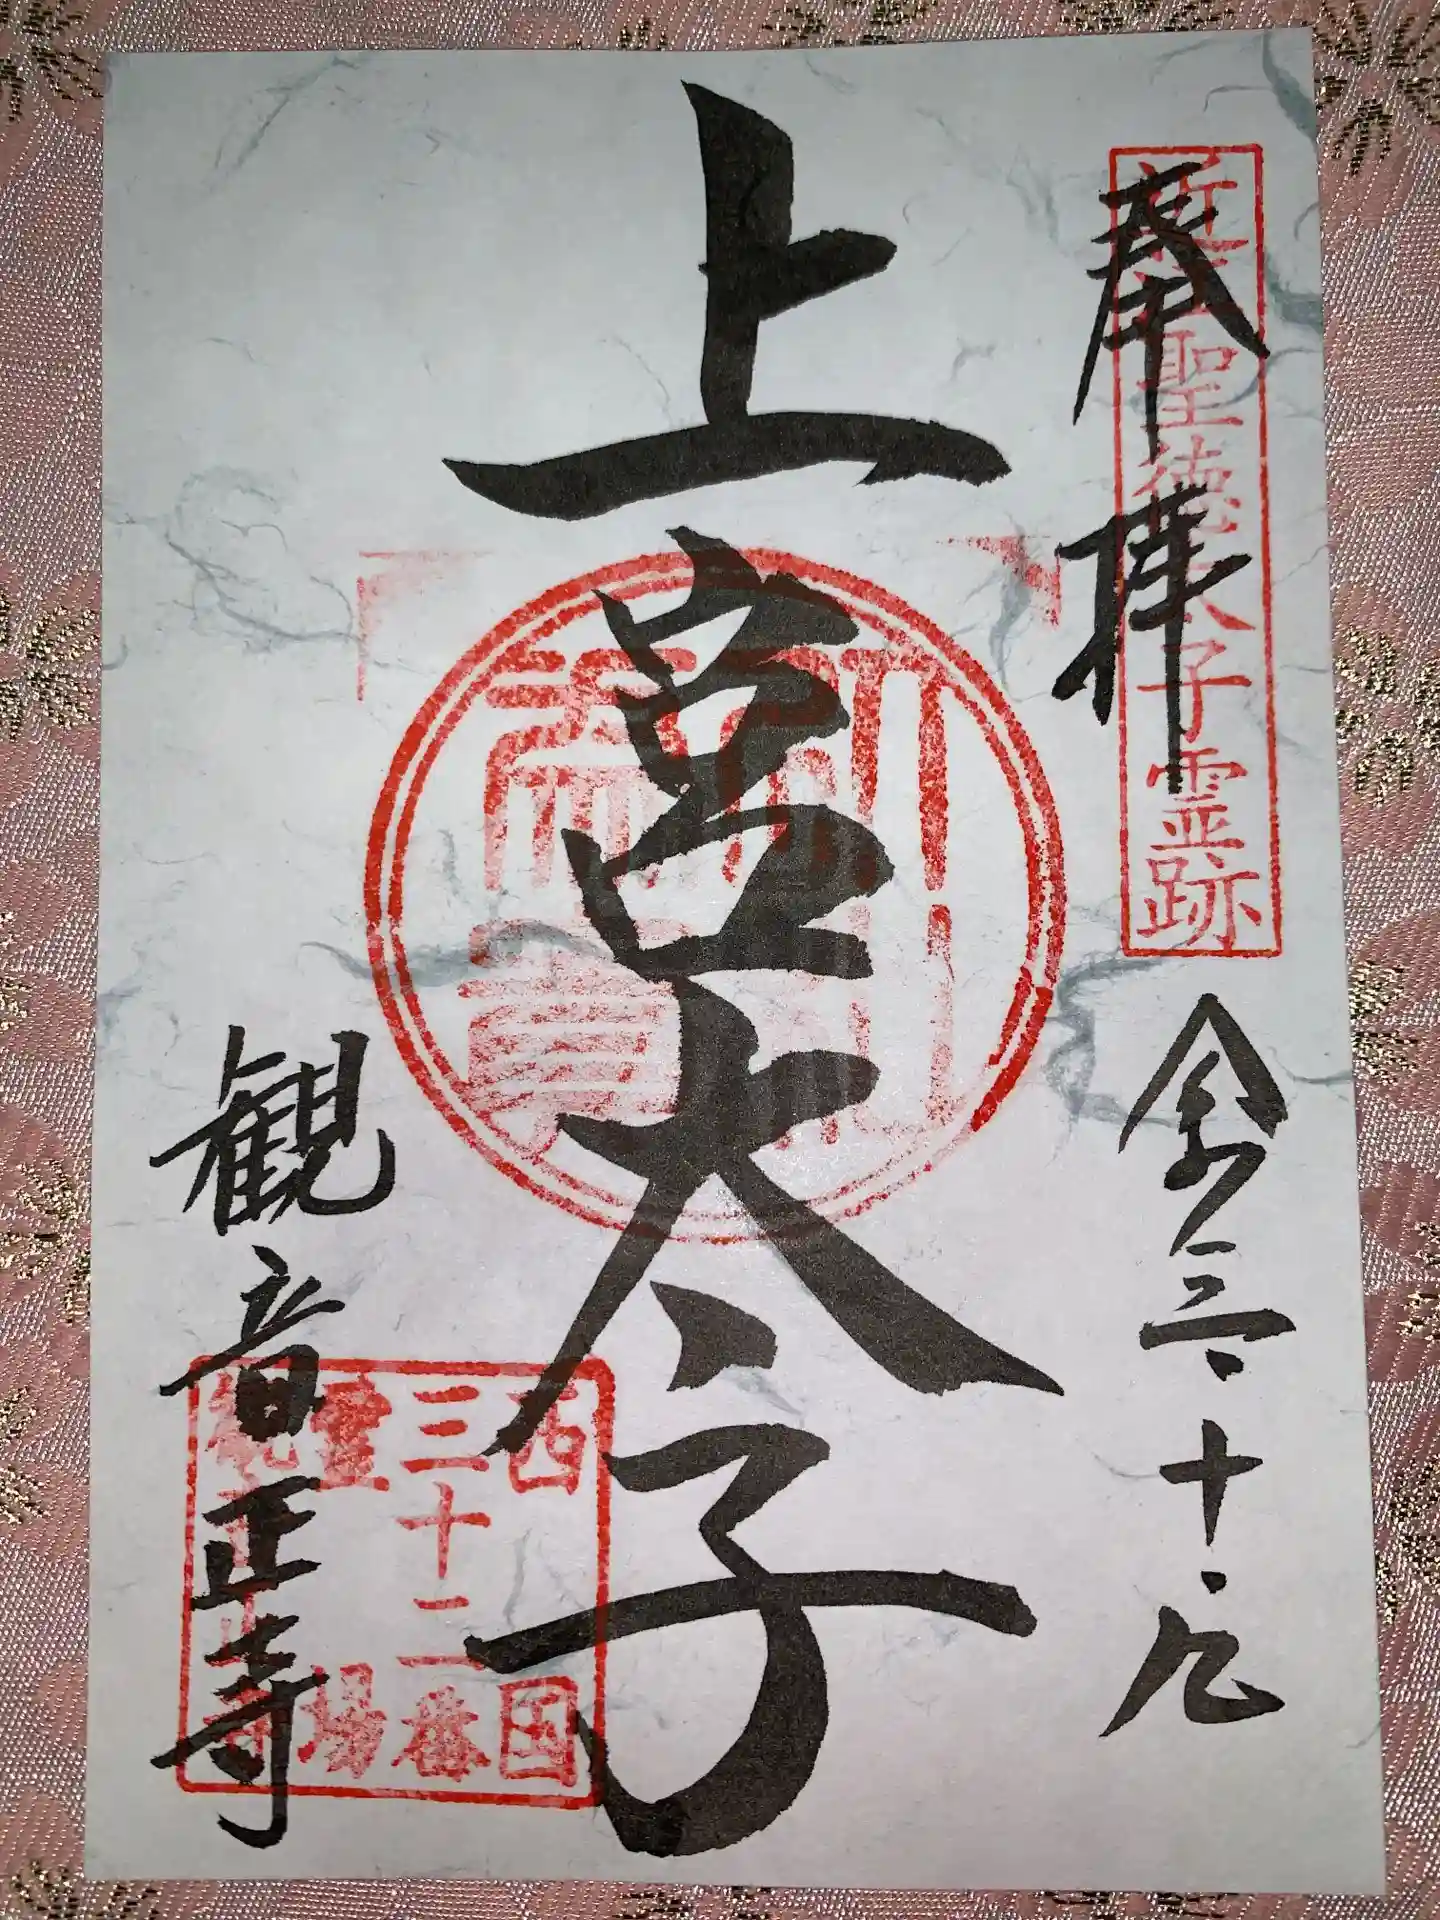 奉拝
近江聖徳太子霊跡
令三・十・九
上宮太子
西国
三十二番
霊場
観音正寺
観音正寺